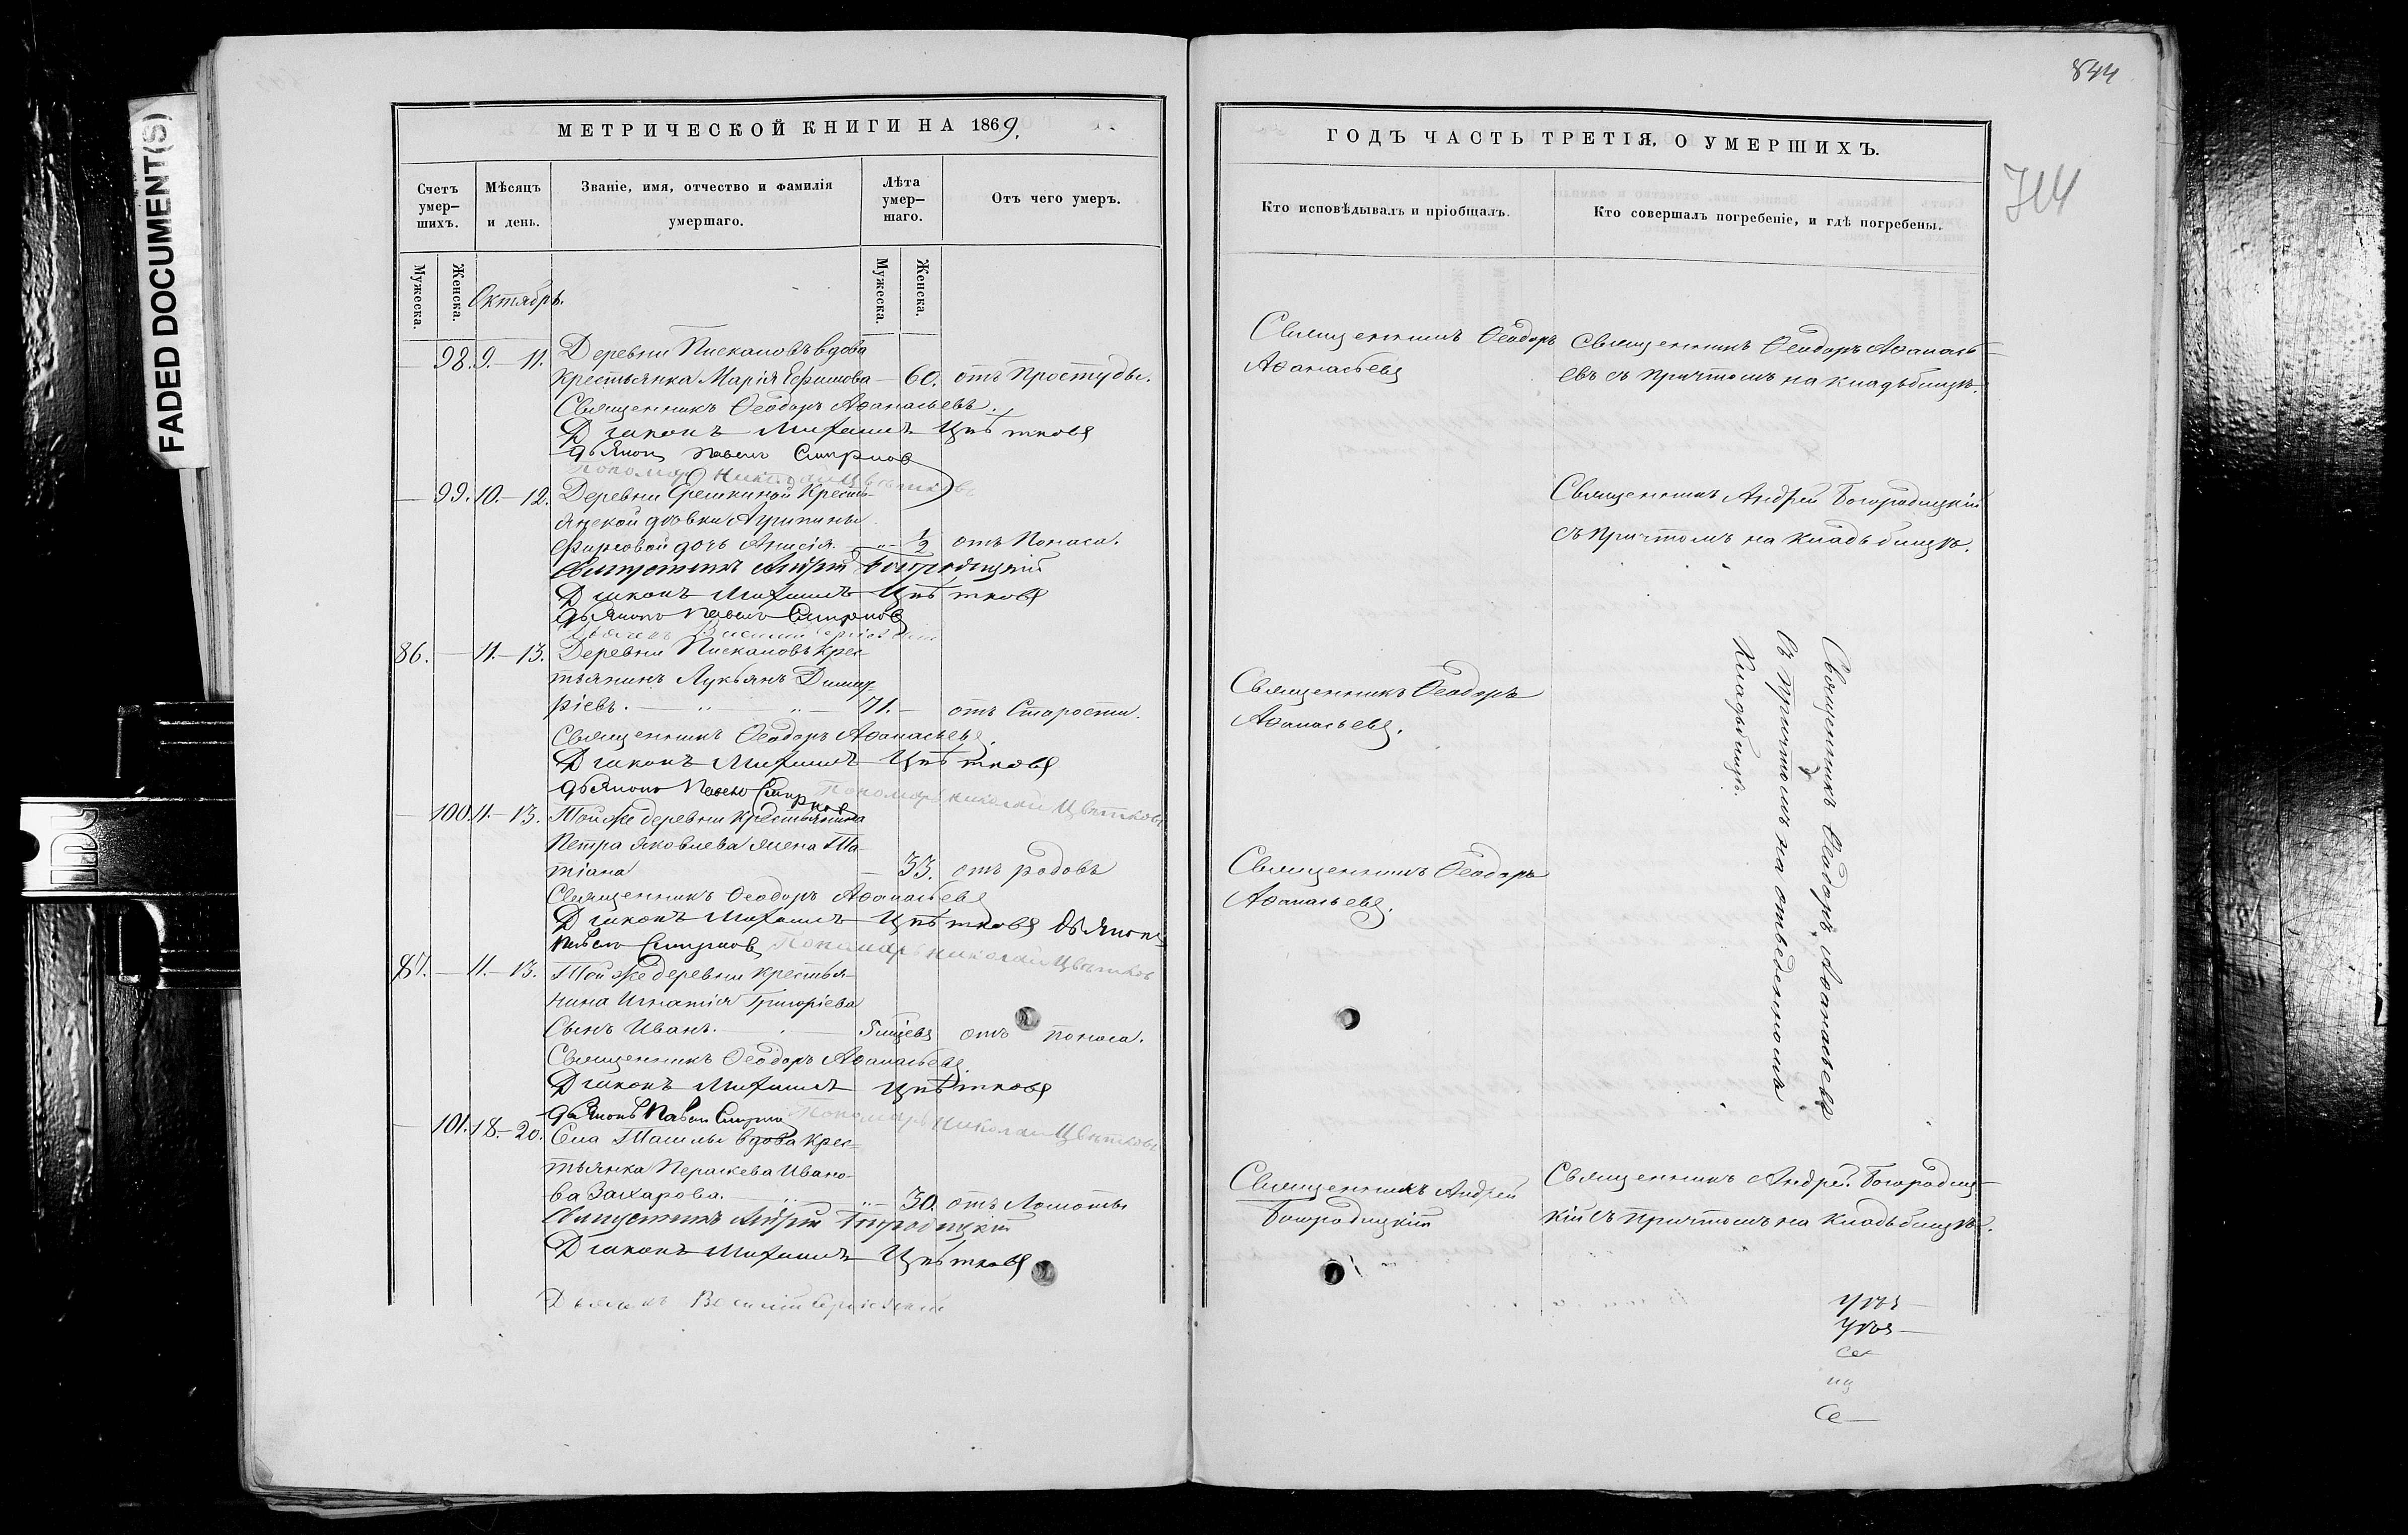 FADED DOCUMENT(S)
844
714
МЕТРИЧЕСКОЙ КНИГИ НА 1869.
Счетъ умер–шихъ.
Мѣсяцъ и день.
Званіе, имя, отчество и фамилія умершаго.
Лѣта умер–шаго.
Отъ чего умеръ.
Мужеска.
Женска.
Октябрь.
Мужеска.
Женска.
— 98. 9.— 11. Деревни Пискаловъ вдова
крестьянка Марія Ефимова — 60. отъ простуды.
Священникъ Ѳеодоръ Аѳанасьевъ.
Діаконъ Михаилъ Цвѣтковъ
дьячокъ Павелъ Смирнов
Пономарь Николай Цвѣтковъ
— 99. 10.— 12. Деревни Ерешкиной Кресть-
янской дѣвки Агрипины
дочь Анисія. — 1/2 отъ Поноса.
Священникъ Андрей Богородицкій
Діаконъ Михаилъ Цвѣтковъ
дьячокъ Павелъ Смирнов
Дьячекъ Василій
86. — 11.— 13. Деревни Пискаловъ крес-
тьянинъ Лукьянъ Димит-
ріевъ. — 71. — отъ Старости.
Священникъ Ѳеодоръ Аѳанасьевъ.
Діаконъ Михаилъ Цвѣтковъ
дьячокъ Павелъ Смирнов Пономарь Николай Цвѣтковъ
— 100. 11.— 13. Той же деревни крестьянина
Петра Яковлева жена Та-
тіана — 33. отъ родовъ
Священникъ Ѳеодоръ Аѳанасьевъ
Діаконъ Михаилъ Цвѣтковъ дьячокъ
Павелъ Смирнов Пономарь Николай Цвѣтковъ
87. — 11.— 13. Той же деревни крестья-
нина Игнатія Григоріева
сынъ Иванъ. — 5 мѣсяцев отъ поноса.
Священникъ Ѳеодоръ Аѳанасьевъ.
Діаконъ Михаилъ Цвѣтковъ
дьячокъ Павелъ Смирнов Пономарь Николай Цвѣтковъ
— 101. 18.— 20. Села Ташлы вдова крес-
тьянка Параскева Ивано-
ва Захарова. — 30. отъ Ломоты
Священникъ Андрей Богородицкій
Діаконъ Михаилъ Цвѣтковъ
Дьячекъ Василій
ГОДЪ ЧАСТЬ ТРЕТІЯ, О УМЕРШИХЪ.
Кто исповѣдывалъ и пріобщалъ.
Кто совершалъ погребеніе, и гдѣ погребены.
Священникъ Ѳеодоръ
Аѳанасьевъ
Священникъ Ѳеодоръ Аѳанась-
евъ съ причтомъ на кладьбищѣ.
Священникъ Андрей Богородицкій
съ причтомъ на кладьбищѣ.
Священникъ Ѳеодоръ
Аѳанасьевъ.
Священникъ Ѳеодоръ Аѳанасьевъ
съ причтомъ на отведенномъ
Кладьбищѣ.
Священникъ Ѳеодоръ
Аѳанасьевъ.
Священникъ Андрей
Богородицкій
Священникъ Андрей Богородиц-
кій съ причтомъ на кладьбищѣ.